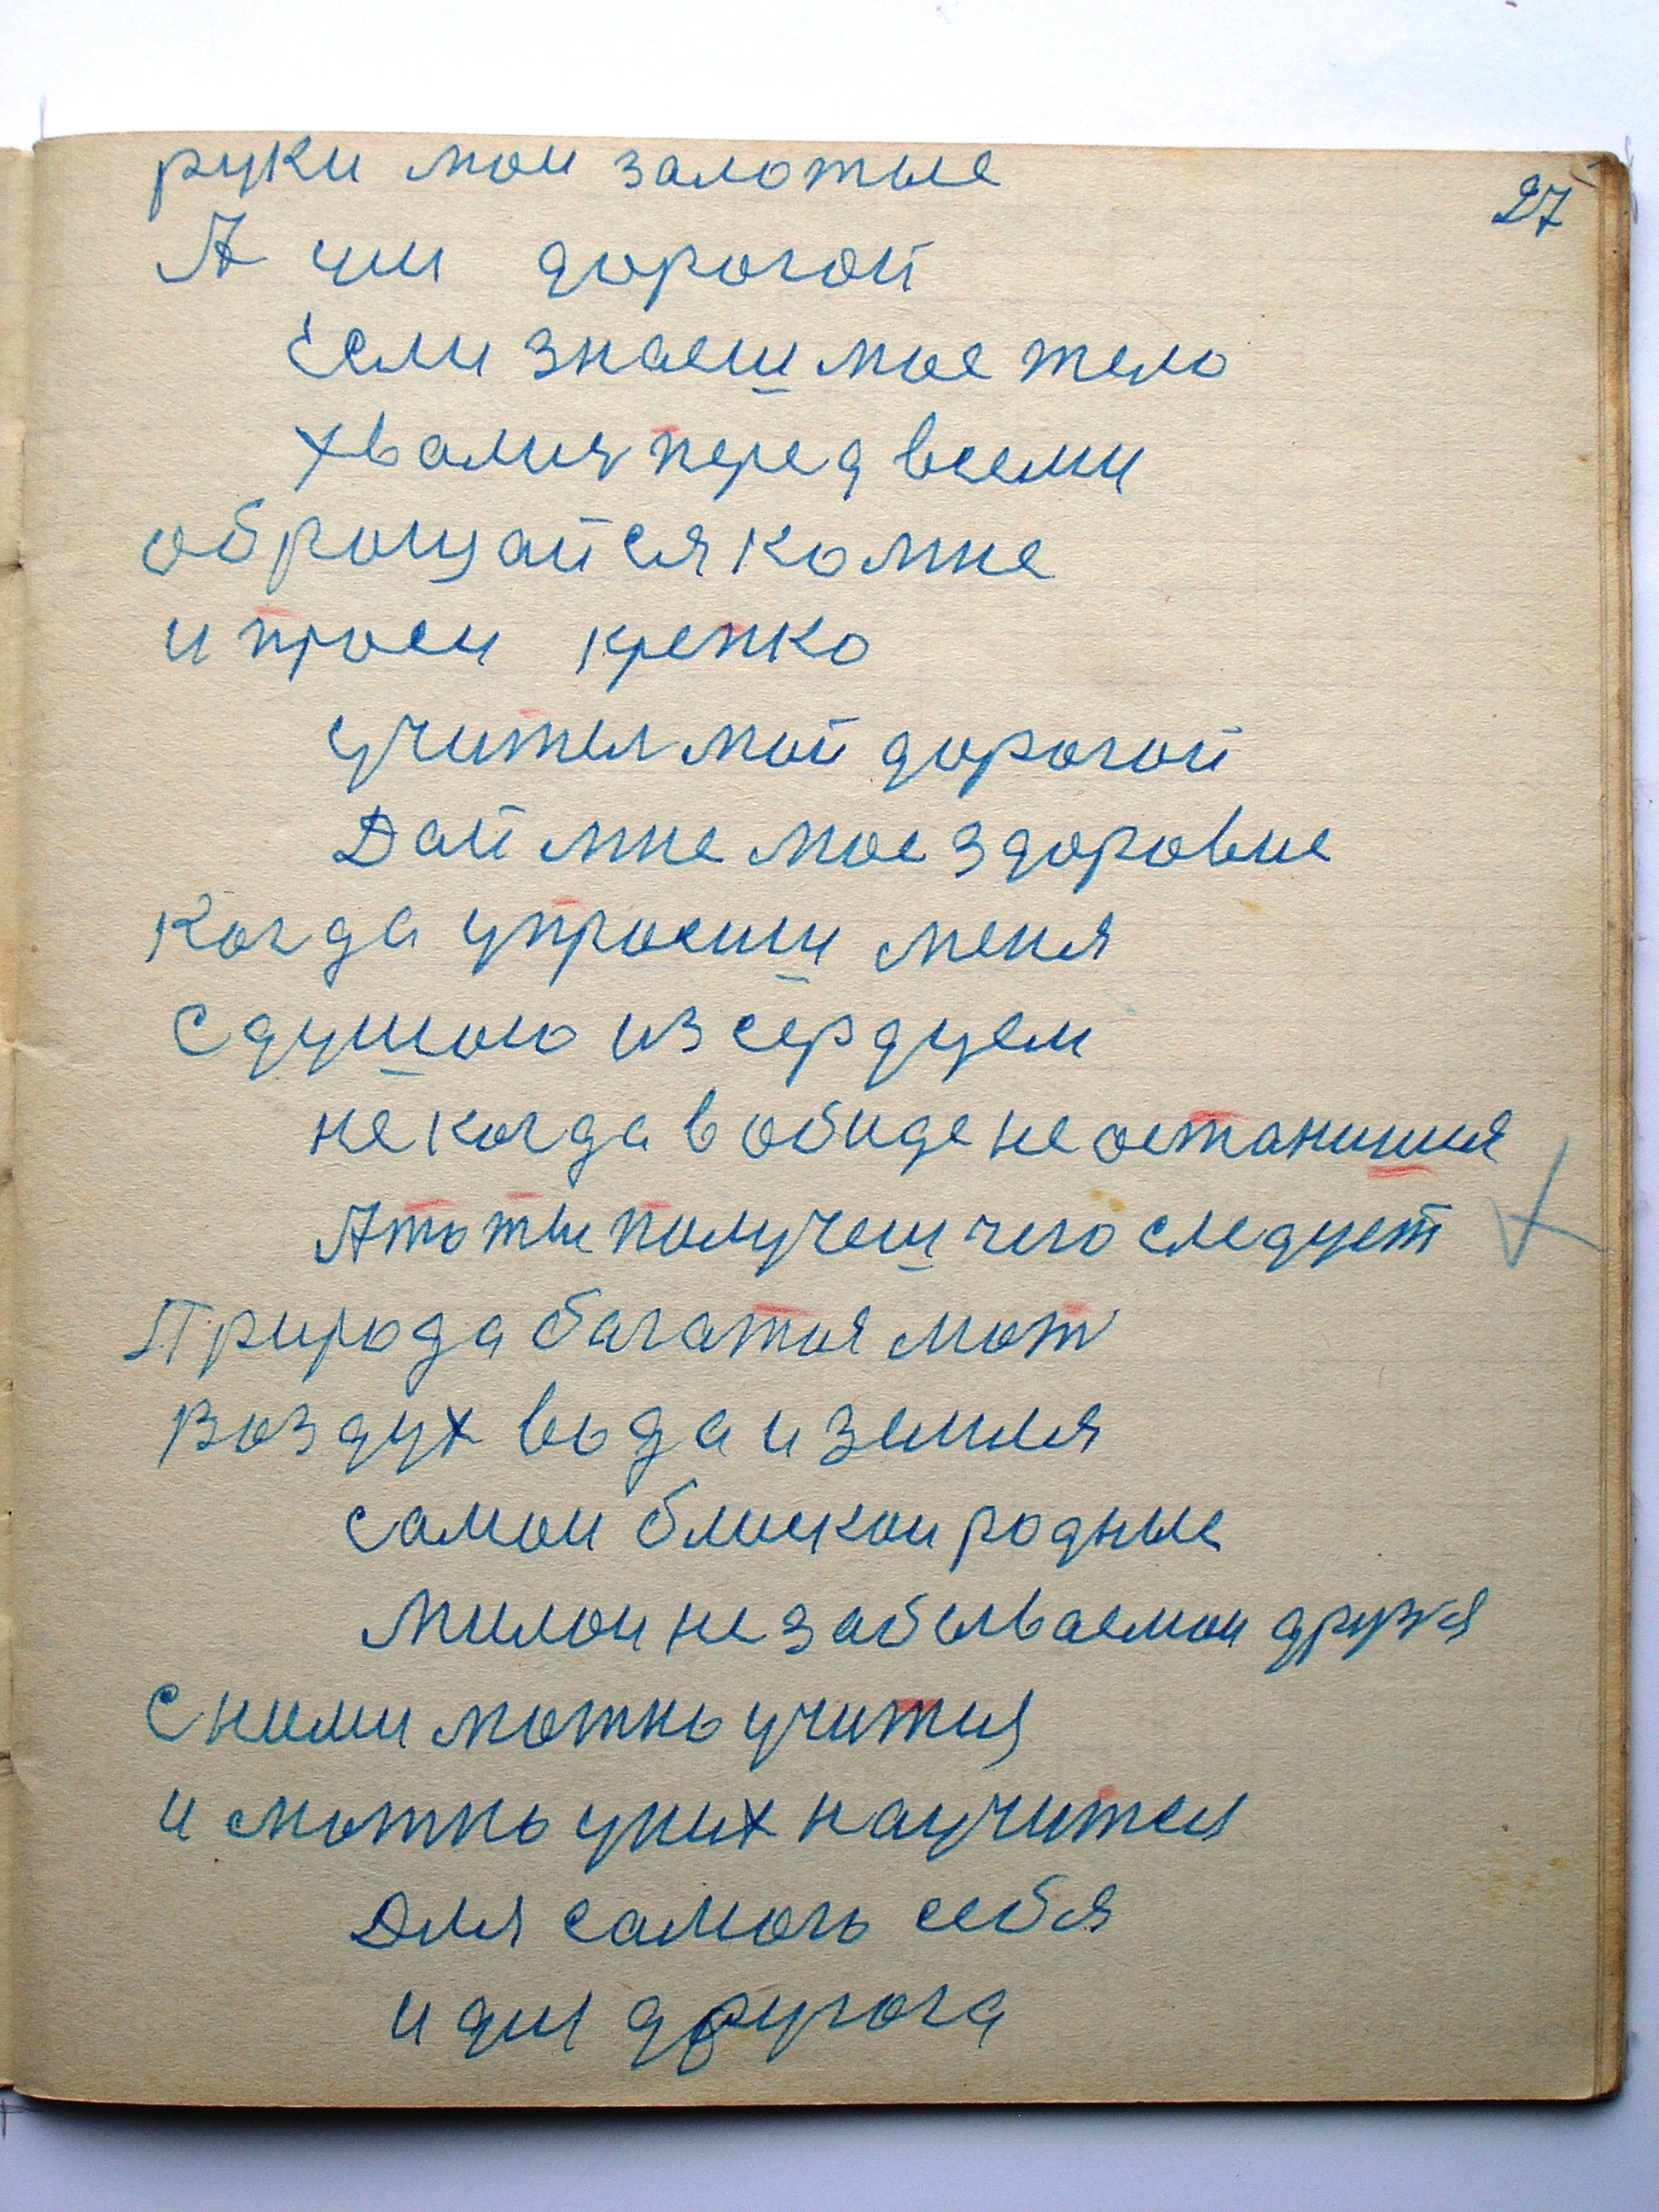 27
руки мои залотые
А ум дорогой
Если знаеш мое тело
хвалися перед всеми
оброщайся комне
и проси крепко
учитель мой дорогой
Дай мне мое здоровие
Когда упросиш меня
с душою из сердцем
не когда в обиде не останишся
А то ты получеш чего следует
Природа багатоя мот
Воздух вода и земля
самои блиской родные
Милои незабываемои друзя
с ними мотно учится
и мотно уних научится
Для самого себя
и для другога